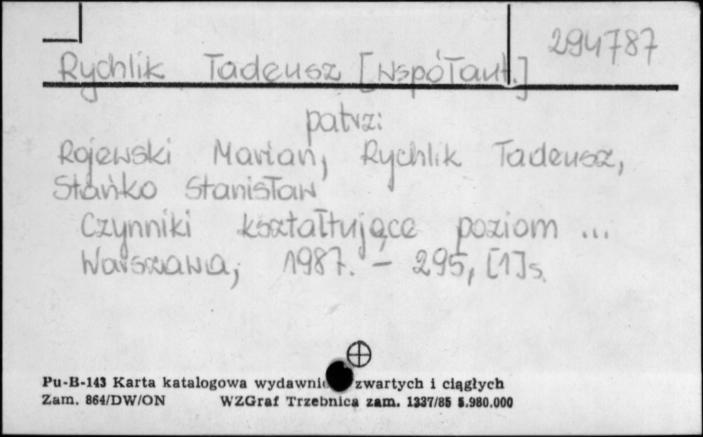 294787
Rychlik Tadeusz [współaut.]
patrz:
Rojewski Marian, Rychlik Tadeusz,
Stańko Stanisław
Czynniki kształtujące poziom ...
Warszawa, 1987. - 295, [1] s.
Pu-B-143 Karta katalogowa wydawnic zwartych i ciągłych
Zam. 864/DW/ON WZGraf Trzebnica zam. 1337/85 5.980.000